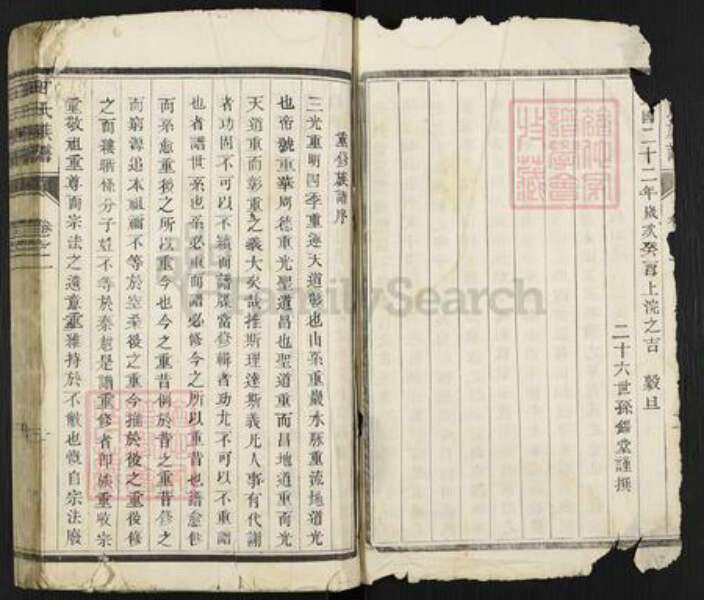 國二十二年歲次癸酉上浣之吉 穀旦
二十六世孫鑑堂謹撰
重修族譜序
三光重明四季重運天道彰也山系重巖水脈重流地道光
也帝號重華周德重光聖道昌也聖道重而昌地道重而光
天道重而彰重之義大矣哉推斯理達斯義凡人事有代謝
者功固不可以不續而譜牒當修輯者功尤不可以不重譜
也者譜世系也系必重而譜必修今之所以重昔也譜愈修
而系愈重後之所以重今也今之重昔例於昔之重昔修之
而窮源追本祖禰不等於空桑後之重今推於後之重後修
之而縷晰條分子姓不等於秦越是譜重修者即族重收宗
重敬祖重尊而宗法之遺意重維持於不敝也慨自宗法廢
氏族譜
FamilySearch